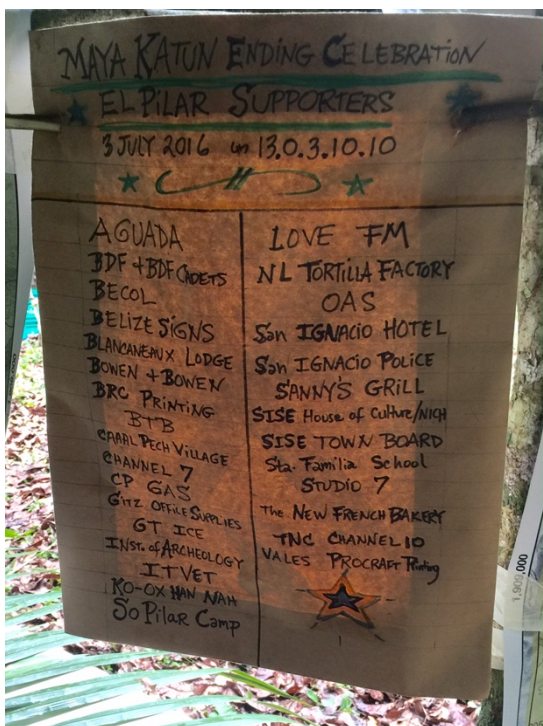 MAYA KATUN ENDING CELEBRATION
EL PILAR SUPPORTERS
3 JULY 2016 13.0.3.10.10
AGUADA
BDF + BDF CADETS
BECOL
BELIZE SIGNS
BLANCANEAUX LODGE
BOWEN + BOWEN
BRC PRINTING
BTB
CAHAL PECH VILLAGE
CHANNEL 7
CP GAS
GITZ OFFICE SUPPLIES
GT ICE
INST. of ARCHEOLOGY
IT VET
KO-OX HAN NAH
SO PILAR CAMP
LOVE FM
NL TORTILLA FACTORY
OAS
San IGNACIO HOTEL
San IGNACIO POLICE
SANNY'S GRILL
SISE House of Culture/NICH
SISE TOWN BOARD
Sta. Familia School
STUDIO 7
The NEW FRENCH BAKERY
TNC CHANNEL 10
VALES PROCRAFT Printing
1,909,000